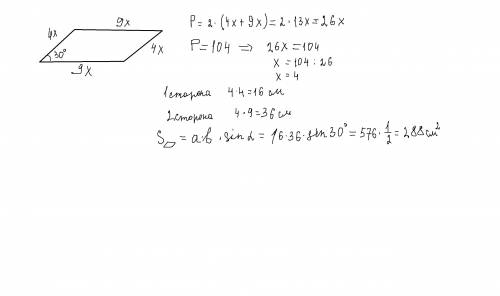 9x
4x
30°
4x
9x
P = 2·(4x+9x) = 2·13x = 26x
P = 104 ⇒ 26x = 104
x = 104 : 26
x = 4
1 сторона 4·4 = 16 см
2 сторона 4·9 = 36 см
S▱ = a·b·sin α = 16·36·sin 30° = 576·1/2 = 288 см²